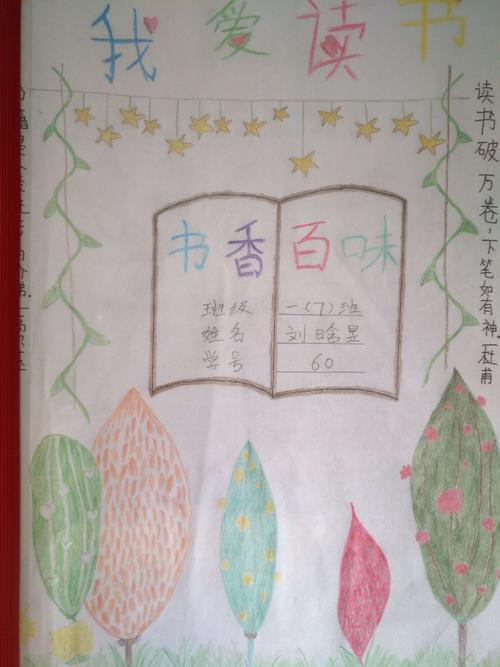 我爱读书
书香百味
班级 一(7)班
姓名 刘晗昱
学号 60
读书破万卷，下笔如有神。—杜甫